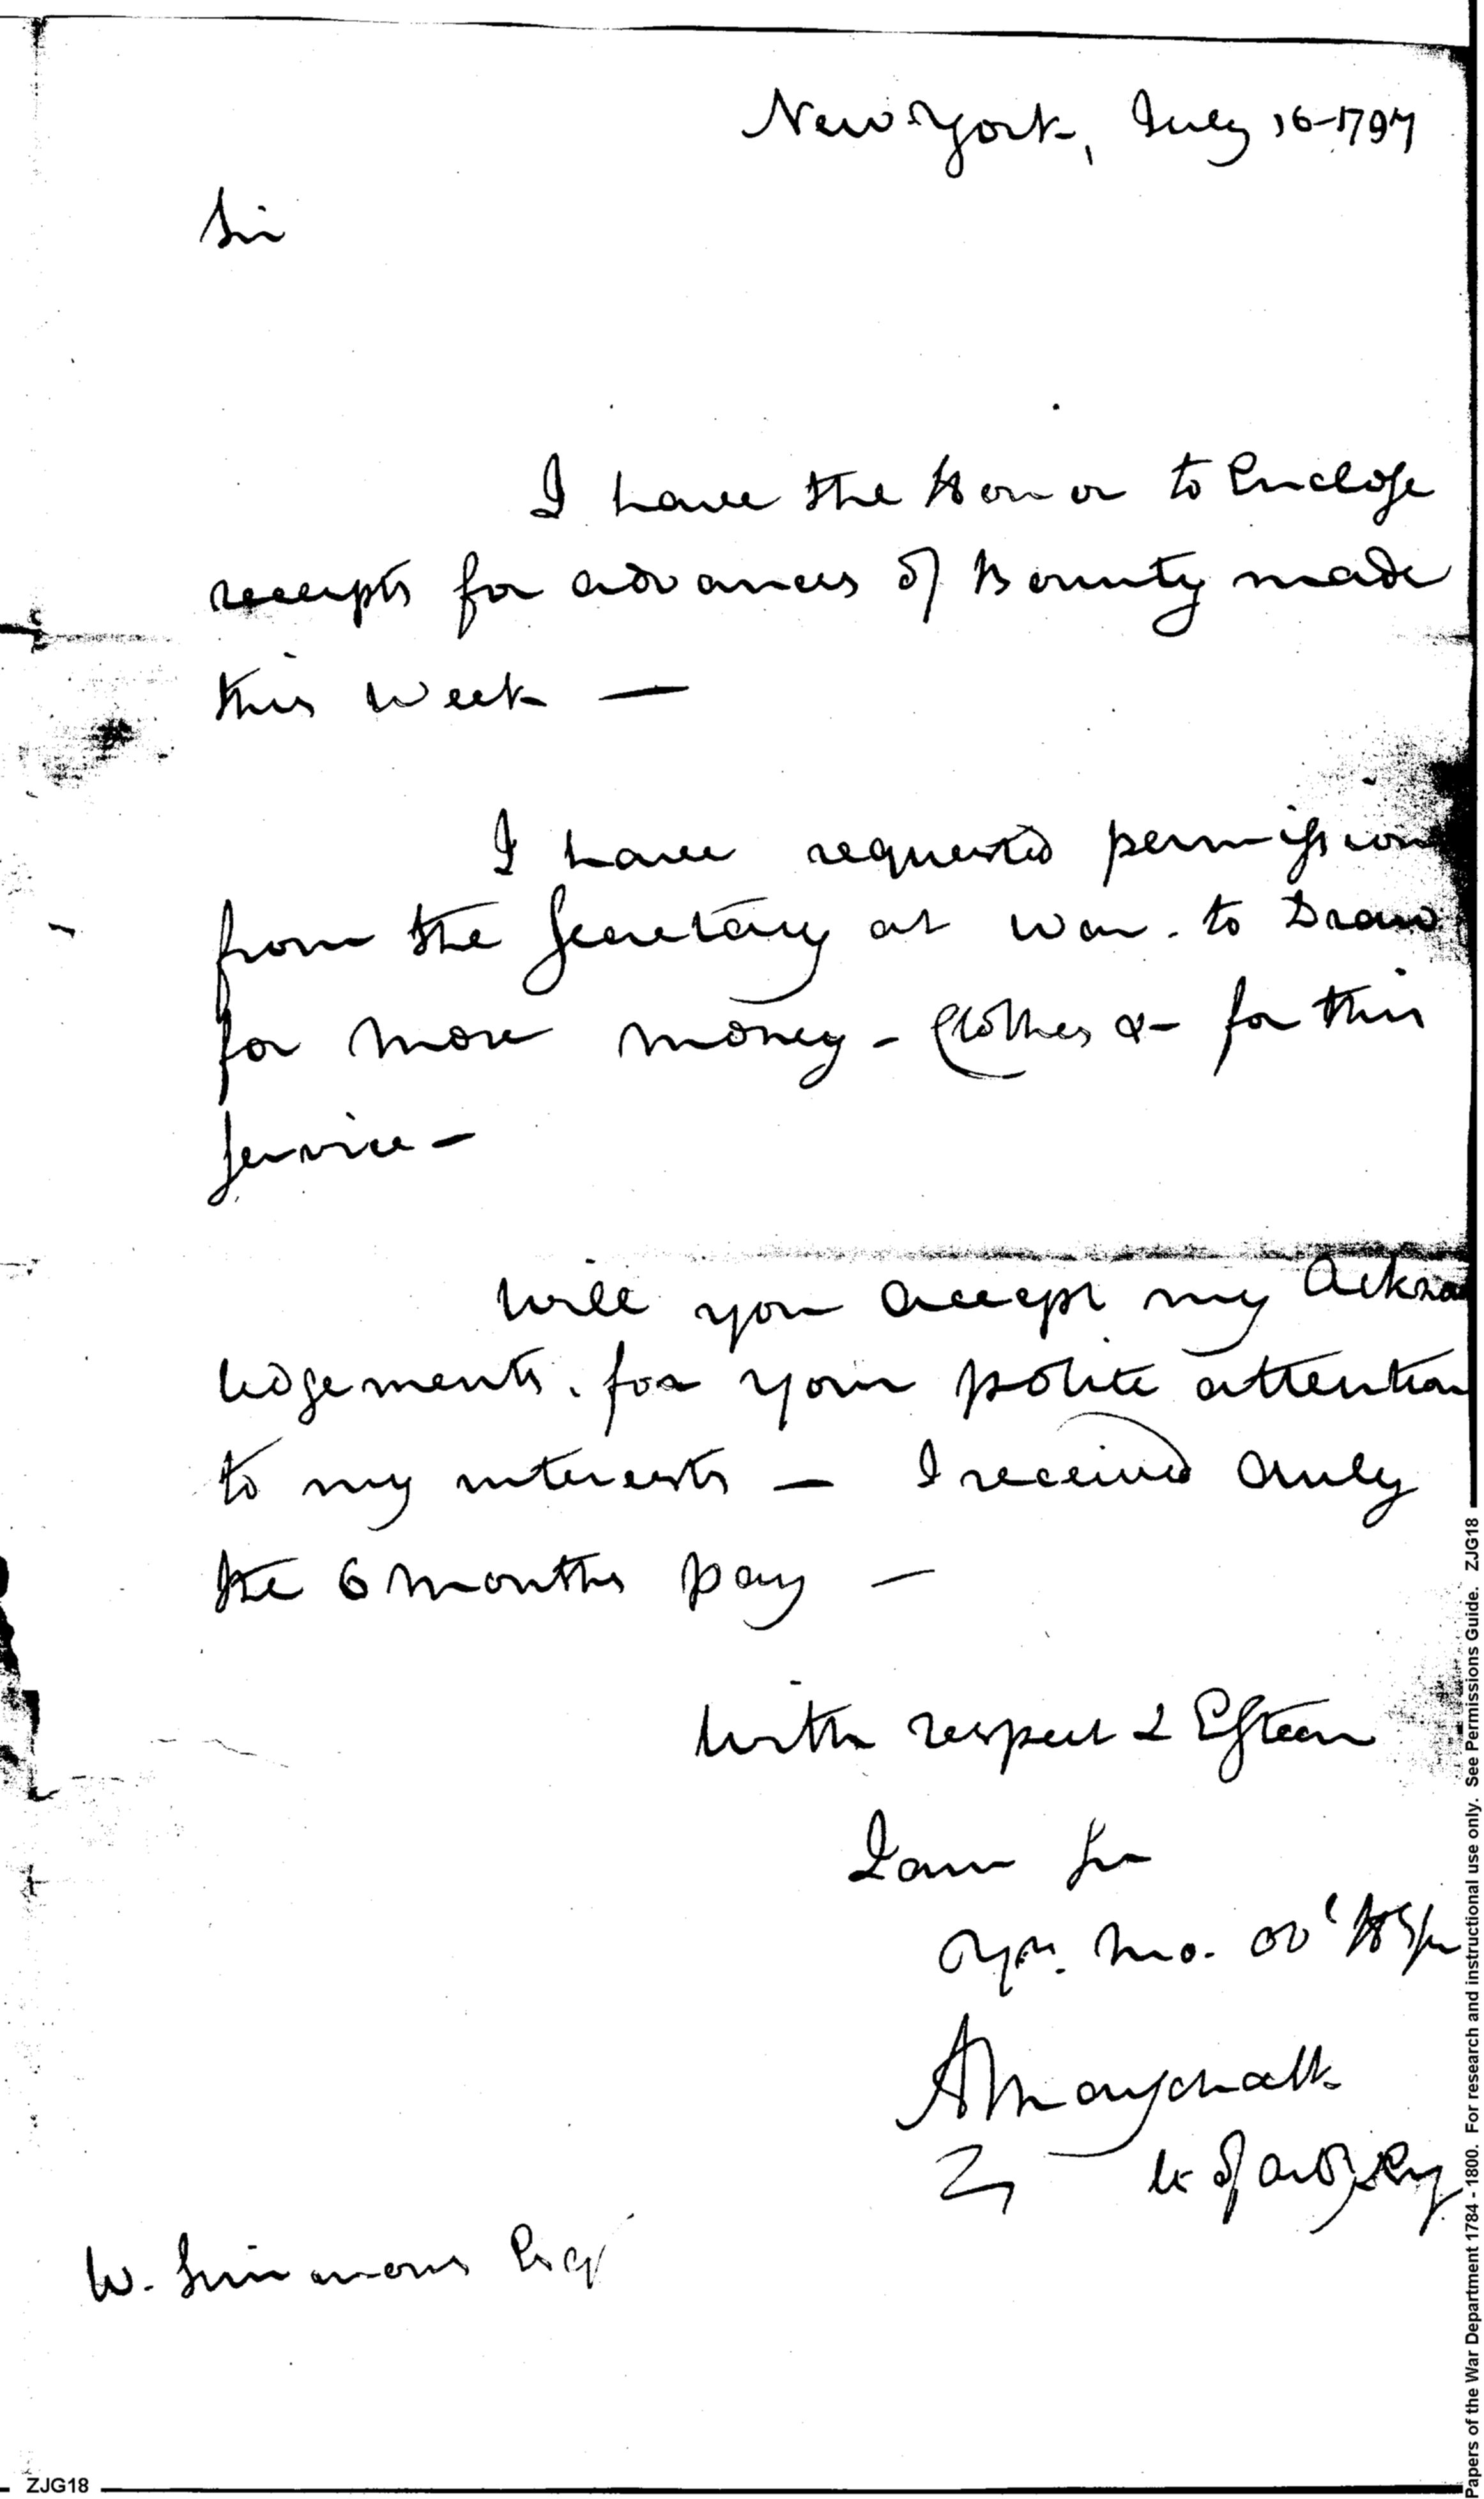 New York, July 16-1797
Sir
I have the Honor to Enclose
receipts for advances of Bounty made
this week —
I have requested permission
from the Secretary at War. to Draw
for more money - Clothes &- for this
Service -
Will you accept my Ackno
ledgements. for your polite attention
to my interests — I received duly
the 6 months pay —
With respect & Esteem
I am Sir
Yr. Mo. Ob
A Marschalk
Lt of
W. Simmons Esqr
ZJG18
Papers of the War Department 1784 - 1800. For research and instructional use only. See Permissions Guide. ZJG18